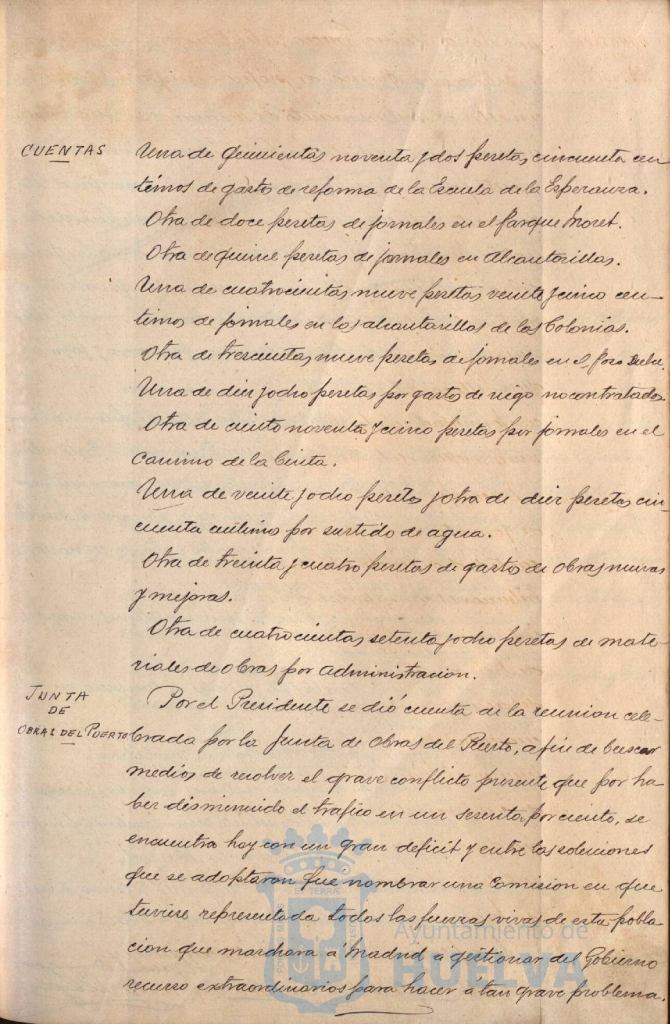 CUENTAS
Una de quinientas noventa y dos pesetas, cincuenta cen-
témos de gasto de reforma de la Escuela de la Esperanza.
Otra de doce pesetas de jornales en el Parque Moret.
Otra de quince pesetas de jornales en Alcantarillas.
Una de cuatrocientas nueve pesetas veinte y cinco cen-
timos de jornales en las alcantarillas de las Colonias.
Otra de trescientas nueve pesetas de jornales en el Pozo
Una de diez y ocho pesetas por gasto de riego no contratado.
Otra de ciento noventa y cinco pesetas por jornales en el
camino de la Cinta.
Una de veinte y ocho pesetas y otra de diez pesetas, cin-
cuenta centimos por surtido de agua.
Otra de treinta y cuatro pesetas de gasto de obras nuevas
y mejoras.
Otra de cuatrocientas setenta y ocho pesetas de mate-
riales de obras por administracion.
JUNTA
DE
OBRAS DEL PUERTO
Por el Presidente se dió cuenta de la reunion cele-
brada por la Junta de Obras del Puerto, a fin de buscar
medios de resolver el grave conflicto presente que por ha
ber disminuido el trafico en un sesenta por ciento, se
encuentra hoy con un gran deficit y entre las soluciones
que se adoptaran fue nombrar una Comision en que
tuviese representada todas las fuerzas vivas de esta pobla
cion que marchara á Madrid á gestionar del Gobierno
recurso extraordinarios para hacer á tan grave problema.
Ayuntamiento de
HUELVA